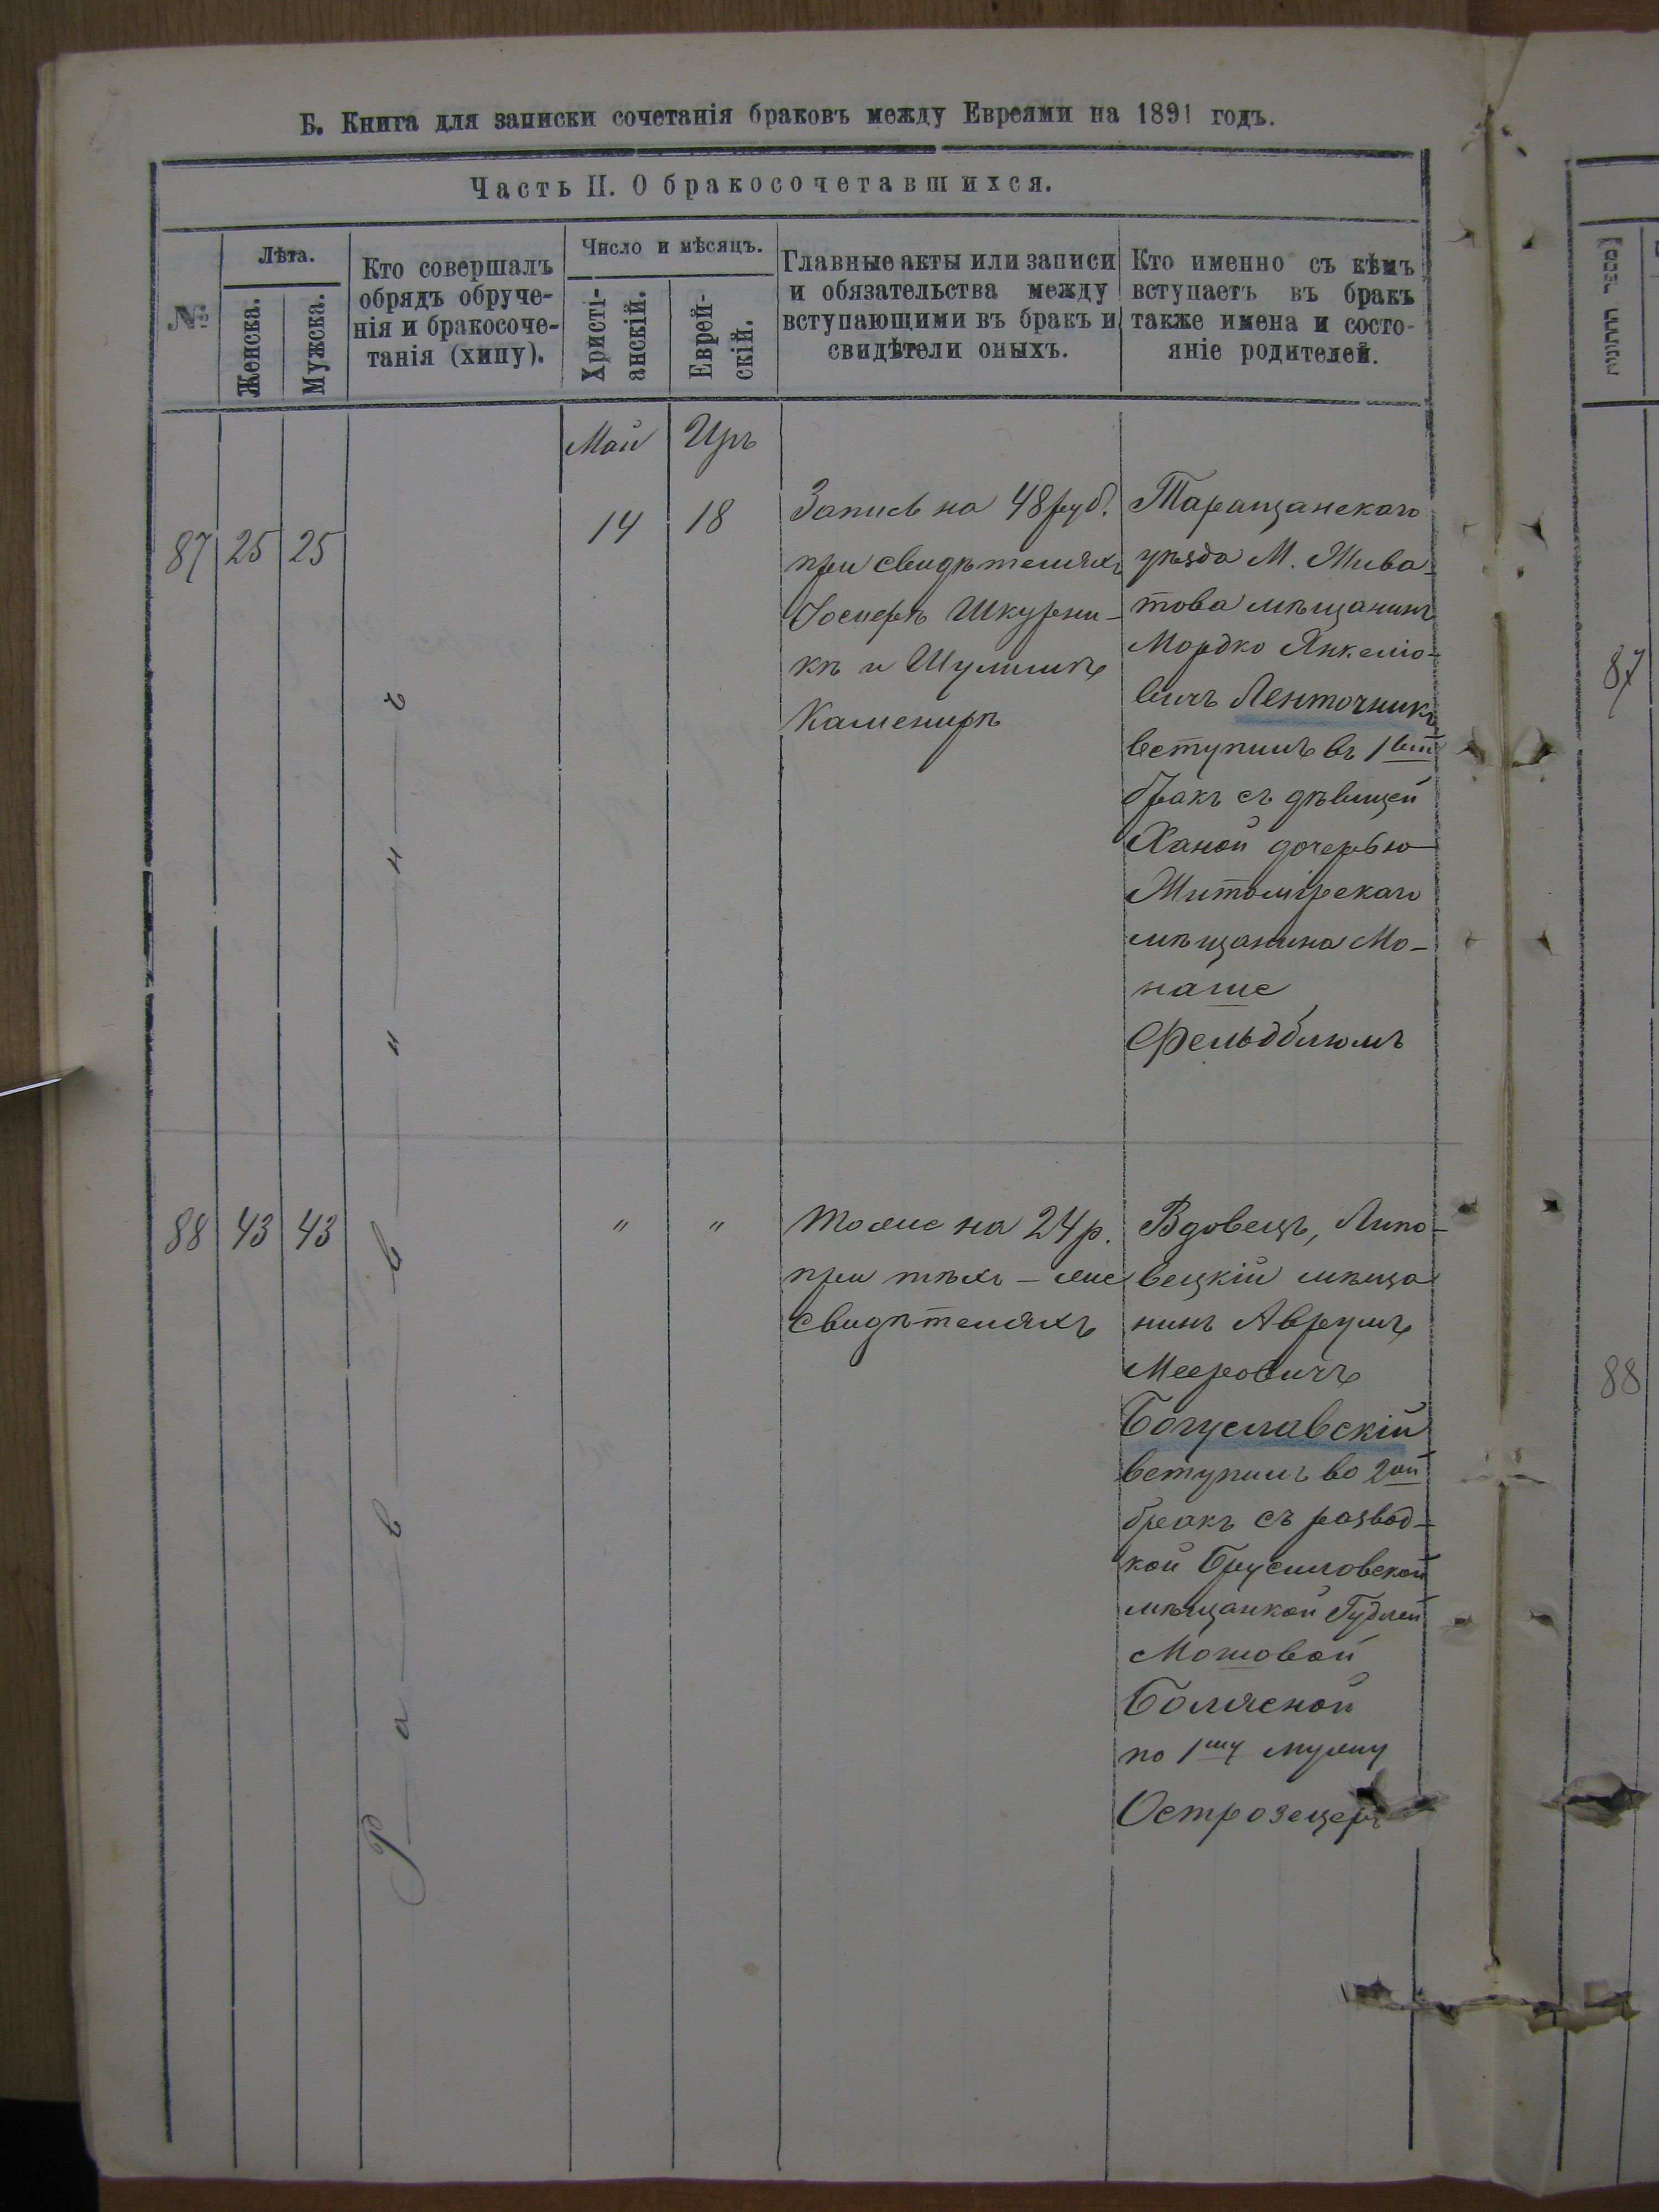 Б. Книга для записки сочетанія браковъ между Евреями на 1891 годъ.
Часть II. О бракосочетавшихся.
№
Лѣта.
Женска.
Мужска.
Кто совершалъ
обрядъ обруче-
нія и бракосоче-
танія (хипу).
Число и мѣсяцъ.
Христі-
анскій.
Еврей-
скій.
Главные акты или записи
и обязательства между
вступающими въ бракъ и
свидѣтели оныхъ.
Кто именно съ кѣмъ
вступаетъ въ бракъ
также имена и состо-
яніе родителей.
Май
Иръ
87
25
25
14
18
Запись на 48 руб.
при свидѣтеляхъ
Іосифѣ Шкурни-
кѣ и Шулимѣ
Каменирѣ
Таращанскаго
уѣзда М. Жива-
това мѣщанинъ
Мордко Янкеліо-
вичъ Ленточникъ
вступилъ въ 1вый
бракъ съ дѣвицей
Ханой дочерью
Житомірскаго
мѣщанина Мо-
наше
Фельдблюмъ
Раввинъ
88
43
43
"
"
Тоже на 24 р.
при тѣхъ-же
свидѣтеляхъ
Вдовецъ, Липо-
вецкій мѣща
нинъ Аврумъ
Мееровичъ
Богуславскій
вступилъ во 2ой
бракъ съ развод-
кой Брусиловской
мѣщанкой Гудлей
Мошовой
Болясной
по 1му мужу
Острозецеръ
87
88